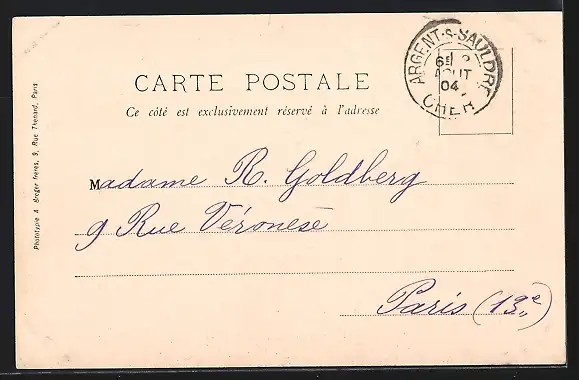 ARGENT-S-SAULDRE
6E
AOUT
04
CHER
CARTE POSTALE
Ce côté est exclusivement réservé à l'adresse
Phototypie A. Breger frères, 9, Rue Thénard, Paris
Madame R. Goldberg
9 Rue Véronèse
Paris (13e)